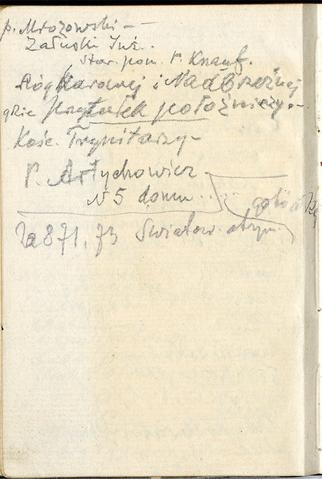 p. Mrozowski —
Załuski Inż..
Star. pom. P. Knauf.
Róg Karowej i Nadbrzeżnej
gdzie Przytułek położniczy.-
Kość. Trynitarzy-
P. Artychowicz
N 5 domu
Za 871,73 Światow. otrzym